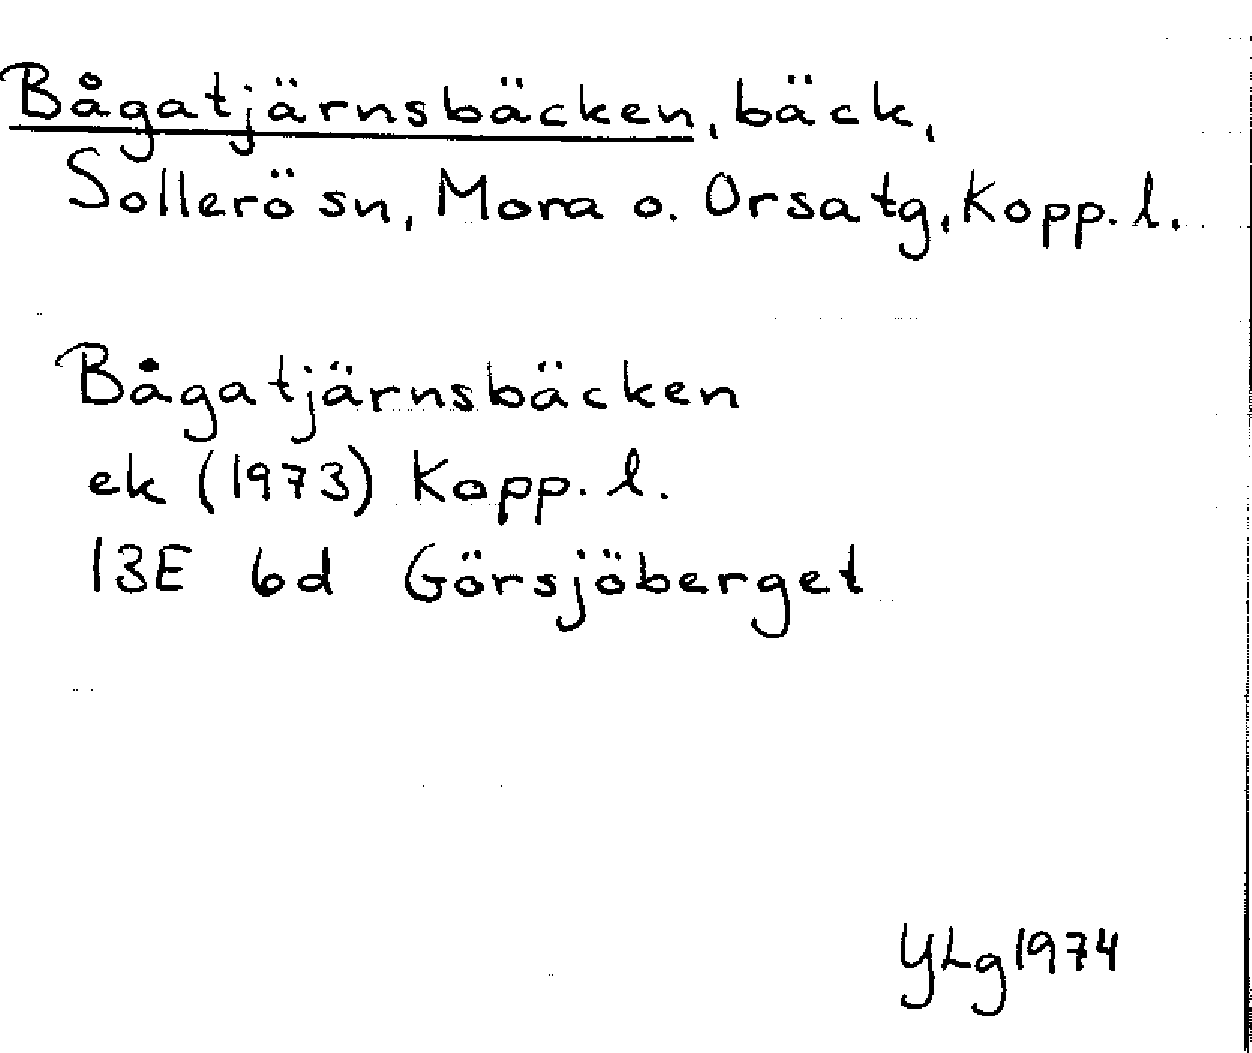 Bågatjärnsbäcken, bäck,
Sollerö sn, Mora o. Orsa tg, Kopp. l.
Bågatjärnsbäcken
ek (1973) Kopp. l.
13E 6d Görsjöberget
YLg 1974